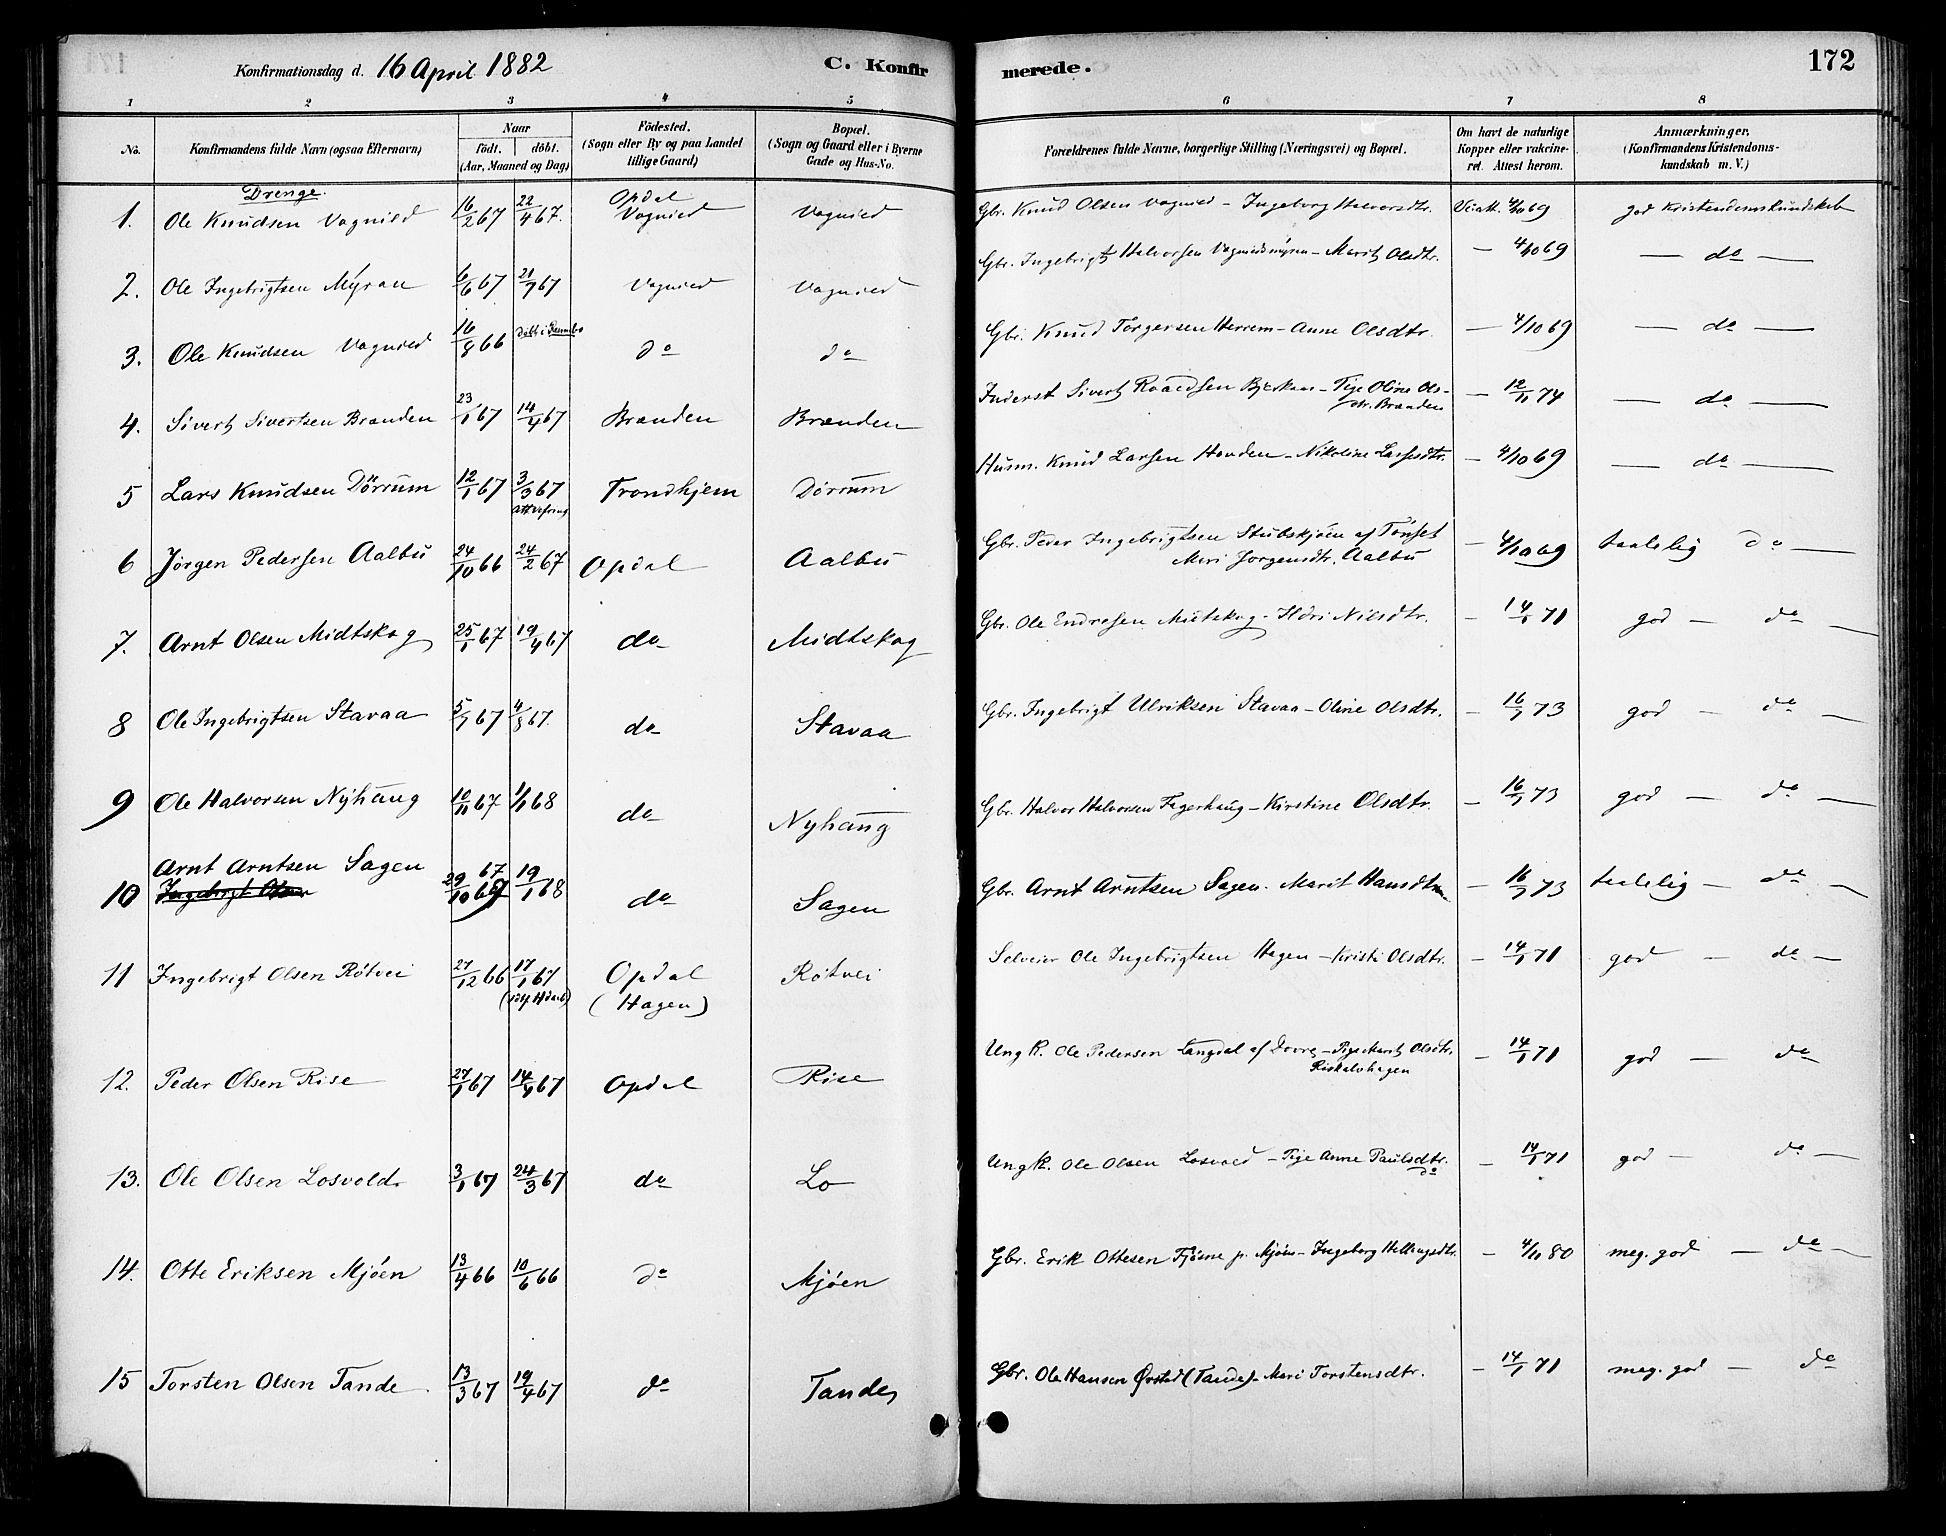 Konfirmationsdag d. 16 April 1882 C. Konfirmerede. 172
1 2 3 4 5 6 7 8
No. Konfirmandens fulde Navn (ogsaa Efternavn) Naar födt. döbt. (Aar, Maaned og Dag) Födested. (Sogn eller By og paa Landet tillige Gaard) Bopæl. (Sogn og Gaard eller i Byerne Gade og Hus-No. Forældrenes fulde Navne, borgerlige Stilling (Næringsvei) og Bopæl. Om havt de naturlige Kopper eller vakcineret. Attest herom. Anmærkninger. (Konfirmandens Kristendomskundskab m. V.)
Drenge.
1. Ole Knudsen Vognild 16/2 67 22/4 67. Opdal Vognild Vognild Gbr. Knud Olsen Vognild - Ingeborg Halvorsdtr. Vcatt. 4/10 69 god Kristendomskundskab
2. Ole Ingebrigtsen Myran 6/6 67 21/7 67 Vognild Vognild Gbr. Ingebrigt Halvorsen Vognildsmyren - Marit Olsdtr. — 4/10 69 — do —
3. Ole Knudsen Vognild 16/8 66 do do Gbr. Knud Torgersen Herrem - Anne Olsdtr. — 4/10 69 — do —
4. Sivert Sivertsen Brænden 23/1 67 14/4 67 Brænden Brænden Inderst Sivert Roaldsen Bjerkaas - Pige Oline Olsdtr. Brænden — 12/11 74 — do —
5 Lars Knudsen Dörrum 12/1 67 3/3 67 Trondhjem Dörrum Husm. Knud Larsen Hovden - Nikoline Larsesdtr. — 4/10 69 — do —
6 Jörgen Pedersen Aalbu 24/10 66 24/2 67 Opdal Aalbu Gbr. Peder Ingebrigtsen Stubskjöien af Tönset Meri Jorgensdtr. Aalbu — 4/10 69 taalelig do —
7. Arnt Olsen Midtskog 25/1 67 19/4 67 do Midtskog Gbr. Ole Endresen Midtskog - Ildri Nilsdtr. — 14/1 71 god — do —
8 Ole Ingebrigtsen Stavaa 5/7 67 4/8 67. do Stavaa Gbr. Ingebrigt Ulriksen Stavaa - Oline Olsdtr. — 16/7 73 god — do —
9 Ole Halvorsen Nyhaug 10/11 67 1/1 68 do Nyhaug Gbr. Halvor Halvorsen Fagerhaug - Kirstine Olsdtr. — 16/7 73 god — do —
10 Arnt Arntsen Sagen Ingebrigt Olsen 29/10 67 19/1 68 do Sagen Gbr. Arnt Arntsen Sagen. Marit Hansdtr — 16/7 73 taalelig — do —
11 Ingebrigt Olsen Rötvei 27/12 66 17/1 67 Opdal (Hagen) Rötvei Selveier Ole Ingebrigtsen Hagen - Kristi Olsdtr. — 14/1 71 god do —
12. Peder Olsen Rise 27/1 67 14/4 67 Opdal Rise Ung K. Ole Pedersen Langdal af Dovre - Pige Marit Olsdtr. — 14/1 71 god — do
13. Ole Olsen Losvold 3/1 67 24/3 67 do Lo Ung K. Ole Olsen Losvold - Pige Anne Paulsdtr. do — 14/1 71 god — do —
14. Otte Eriksen Mjöen 13/4 66 10/6 66 do Mjöen Gbr. Erik Ottesen Fjösne p. Mjöen - Ingeborg Hellingsdtr. — 4/11 80 meg. god — do —
15 Torsten Olsen Tande. 13/3 67 19/4 67 do Tande Gbr. Ole Hansen Ørstad (Tande) - Mari Torstensdtr. — 14/1 71 meg. god — do